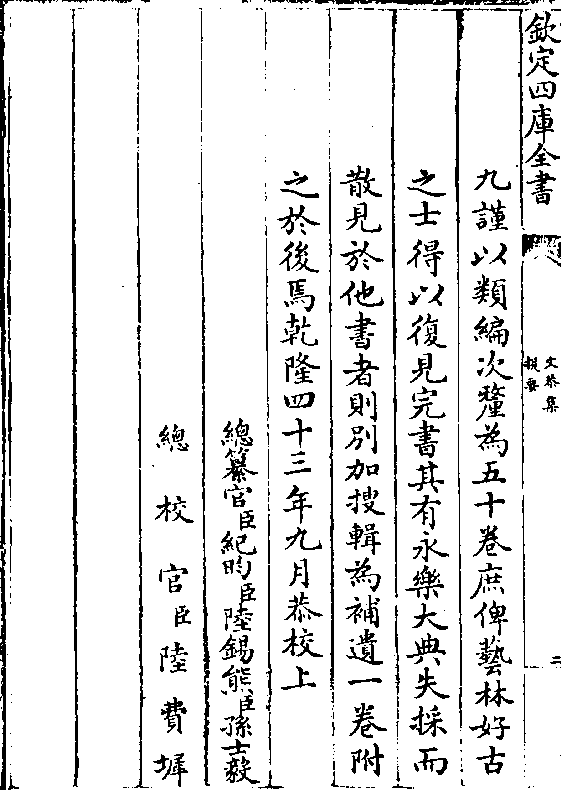 欽定四庫全書
文恭集
提要
二
九謹以類編次釐為五十卷庶俾藝林好古
之士得以復見完書其有永樂大典失採而
散見於他書者則別加搜輯為補遺一卷附
之於後焉乾隆四十三年九月恭校上
總纂官臣紀昀臣陸錫熊臣孫士毅
總校官臣陸費墀